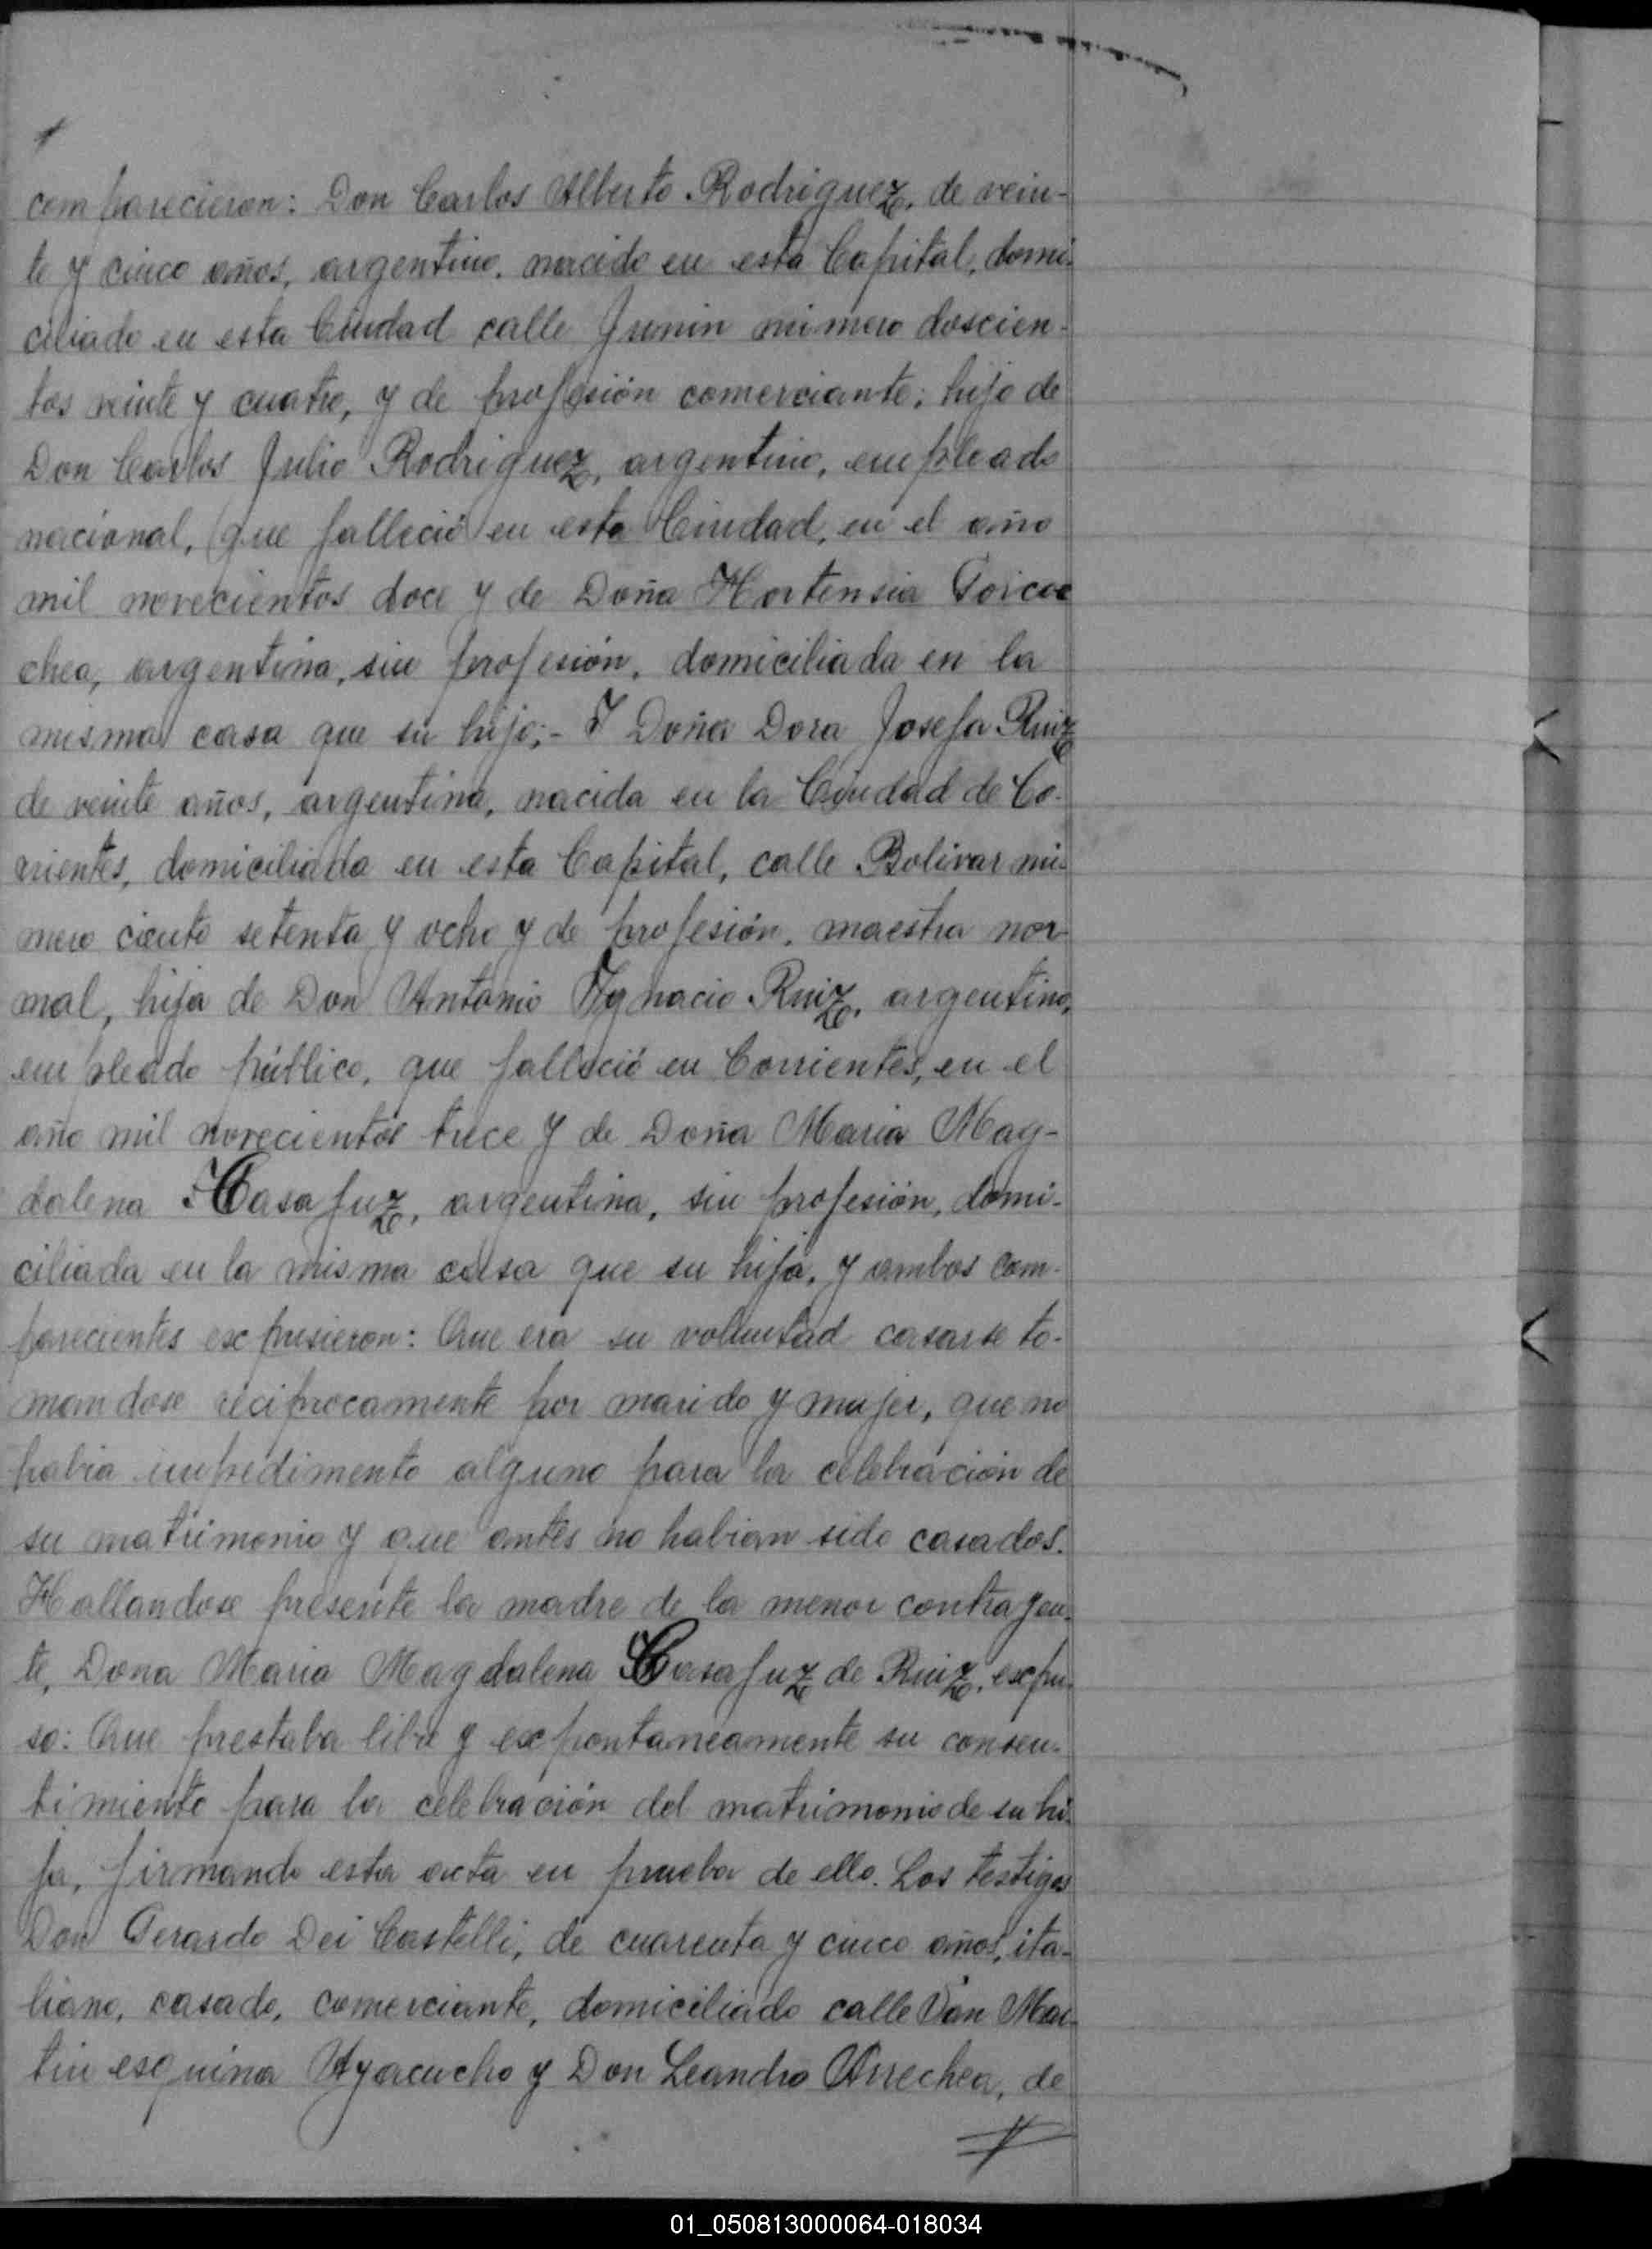 comparecieron: Don Carlos Alberto Rodriguez, de vein-
te y cinco años, argentino, nacido en esta Capital, domi-
ciliado en esta Ciudad calle Junin número doscien-
tos veinte y cuatro, y de profesión comerciante; hijo de
Don Carlos Julio Rodriguez, argentino, empleado
nacional, que falleció en esta Ciudad, en el año
mil novecientos doce y de Doña Hortensia Goicoe
chea, argentina, sin profesión, domiciliada en la
misma casa que su hijo;- Y Doña Dora Josefa Ruiz
de veinte años, argentina, nacida en la Ciudad de Co-
rrientes, domiciliada en esta Capital, calle Bolivar nú-
mero ciento setenta y ocho y de profesión, maestra nor-
mal, hija de Don Antonio Ygnacio Ruiz, argentino,
empleado público, que falleció en Corrientes, en el
año mil novecientos trece y de Doña Maria Mag-
dalena Casafuz, argentina, sin profesión, domi-
ciliada en la misma casa que su hija, y ambos com-
parecientes expusieron: Que era su voluntad casarse to-
mandose reciprocamente por marido y mujer, que no
habia impedimento alguno para la celebración de
su matrimonio y que antes no habian sido casados.
Hallandose presente la madre de la menor contrayen-
te, Dona Maria Magdalena Casafuz de Ruiz, expu-
so: Que prestaba libre y expontaneamente su consen-
timiento para la celebración del matrimonio de su hi-
ja, firmando esta acta en prueba de ello. Los testigos
Don Gerardo Dei Castelli, de cuarenta y cinco años, ita-
liano, casado, comerciante, domiciliado calle San Mar-
tin esquina Ayacucho y Don Leandro Arrechea, de
01_050813000064-018034